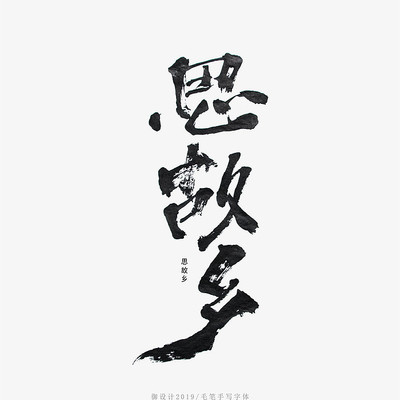 思故乡
思故乡
御设计2019/毛笔手写字体